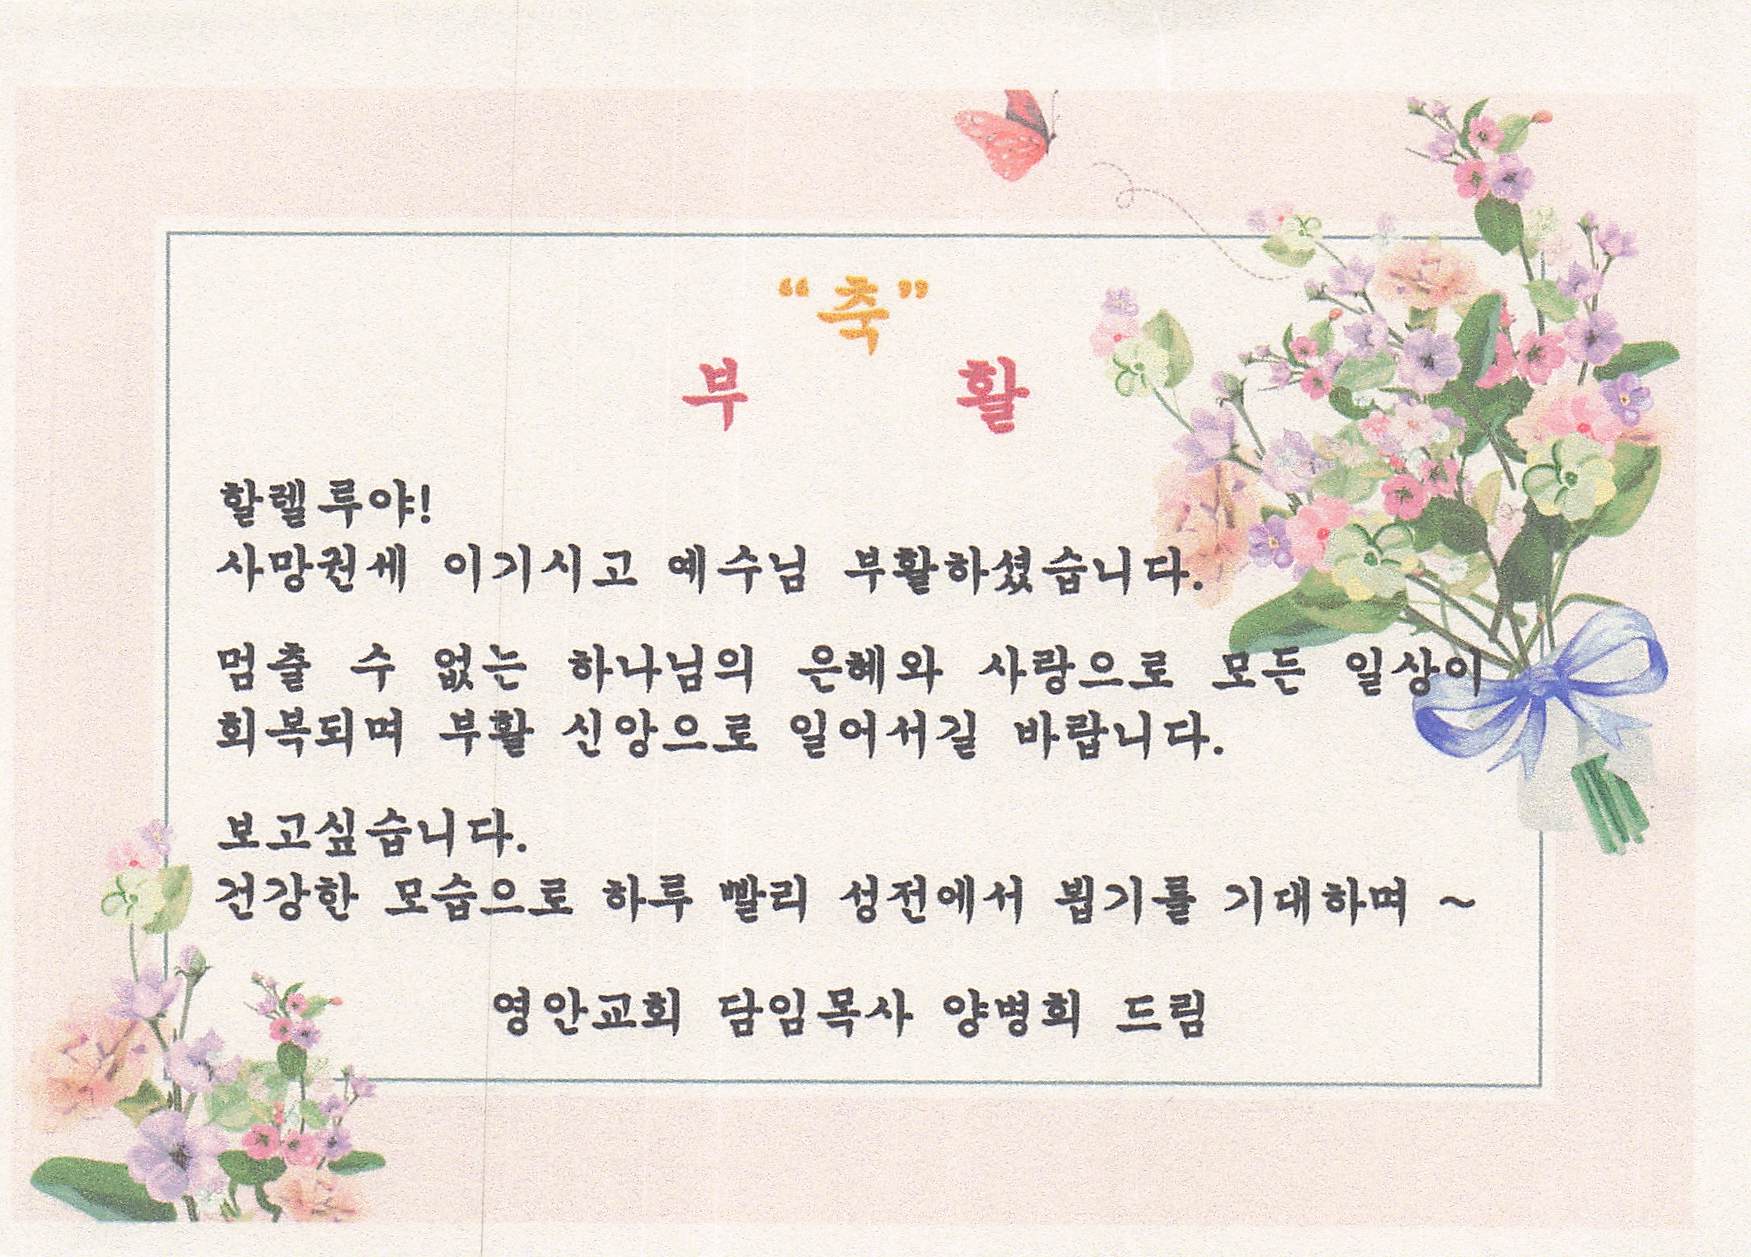 “축”
부 활
할렐루야!
사망권세 이기시고 예수님 부활하셨습니다.
멈출 수 없는 하나님의 은혜와 사랑으로 모든 일상이
회복되며 부활 신앙으로 일어서길 바랍니다.
보고싶습니다.
건강한 모습으로 하루 빨리 성전에서 뵙기를 기대하며 ~
영안교회 담임목사 양병희 드림